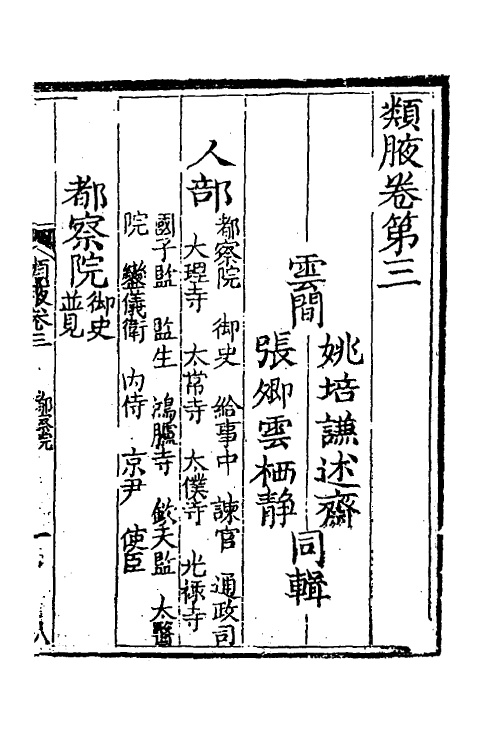 類腋卷第三
雲間
姚培謙述齋
張卿雲栖静
同輯
人部
都察院 御史 給事中 諫官 通政司
大理寺 太常寺 太僕寺 光祿寺
國子監 監生 鴻臚寺 欽天監 太醫
院 鑾儀衛 内侍 京尹 使臣
都察院 御史並見
類腋卷三 都察院 一